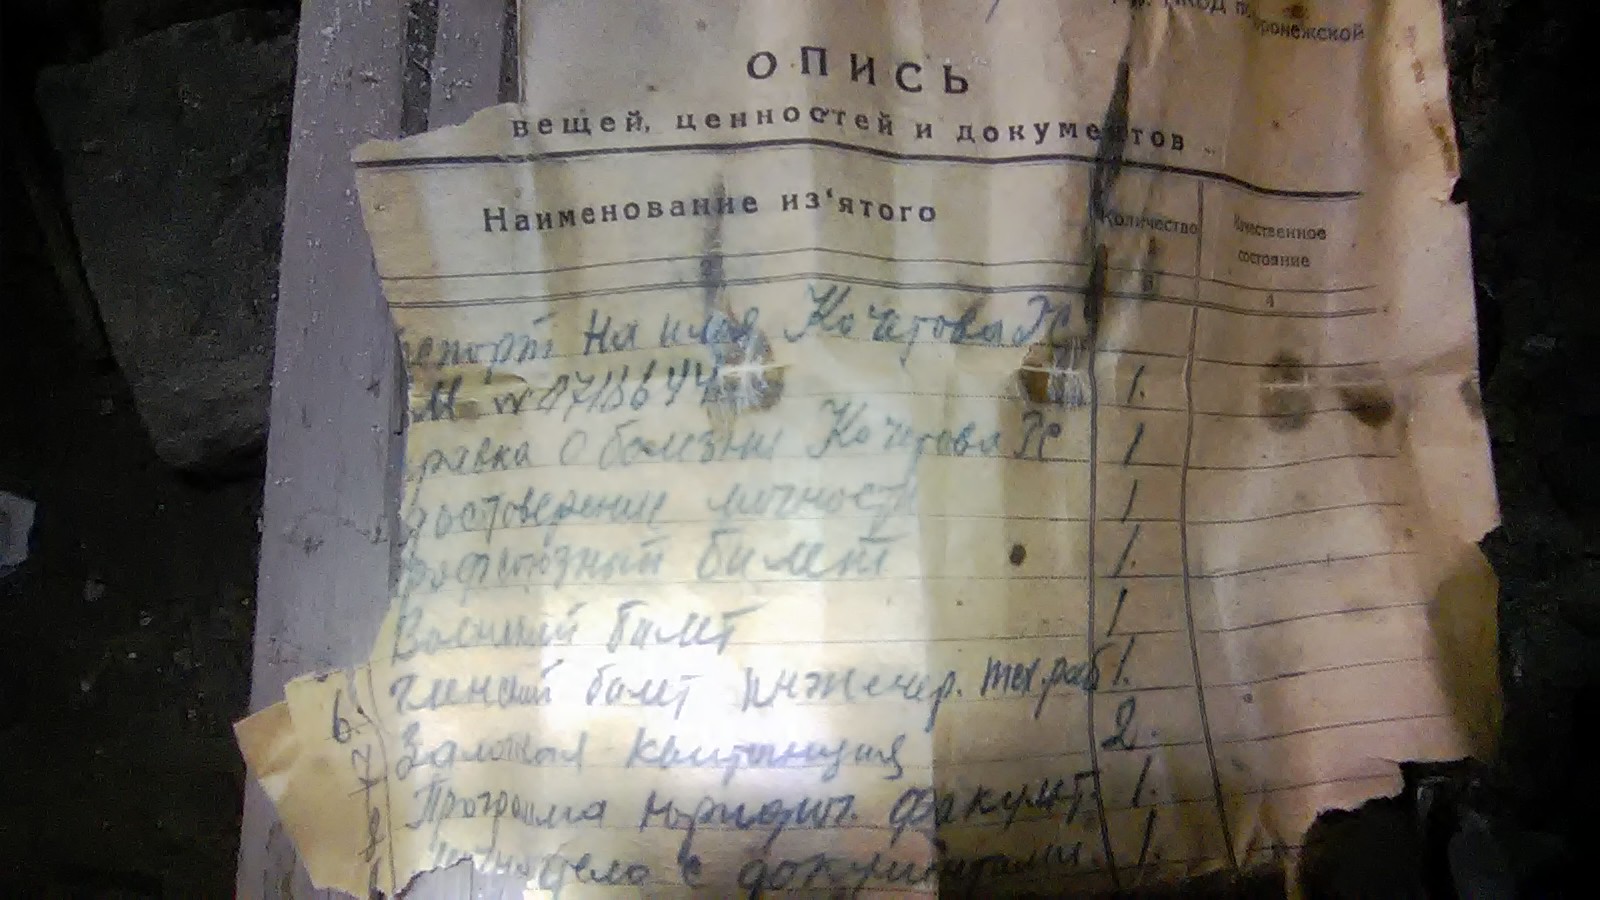 НКОД
ронежской
ОПИСЬ
вещей, ценностей и документов
Наименование из'ятого
Количество
Качественное
состояние
3
4
спорт на имя Кочетова
1.
равка о болезни Кочетова
1
достоверение личности
1
рофсоюзный билет
1.
Военный билет
1
6.
членский билет инженер. тех.раб
1.
7
Залоговая квитанция
2.
8
Программа юридич. факульт
1.
дело с документами
1.